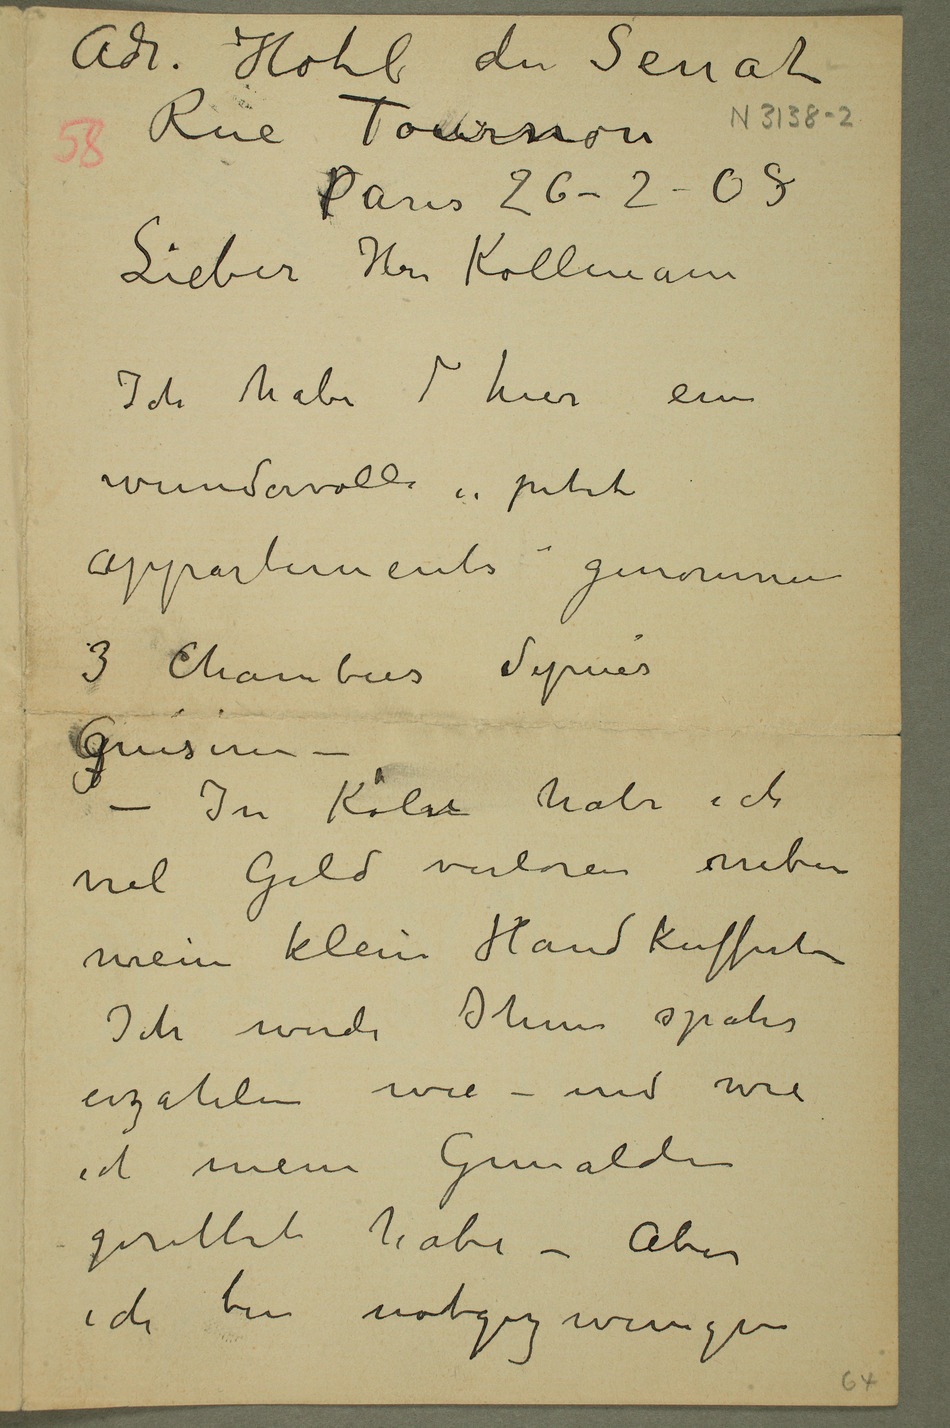 Adr. Hotel du Senat
Rue Tournon
N 3138-2
58
Paris 26-2-03
Lieber Herr Kollmann
Ich habe hier ein
wundervolle „petit
appartements" genommen
3 Chambres
– In Köln habe ich
viel Geld verloren neben
mein klein Handkuffert
Ich werde Ihnen später
erzählen wie – und wie
ich meine Gemälde
gerettet habe – Aber
ich bin notgezwungen
64